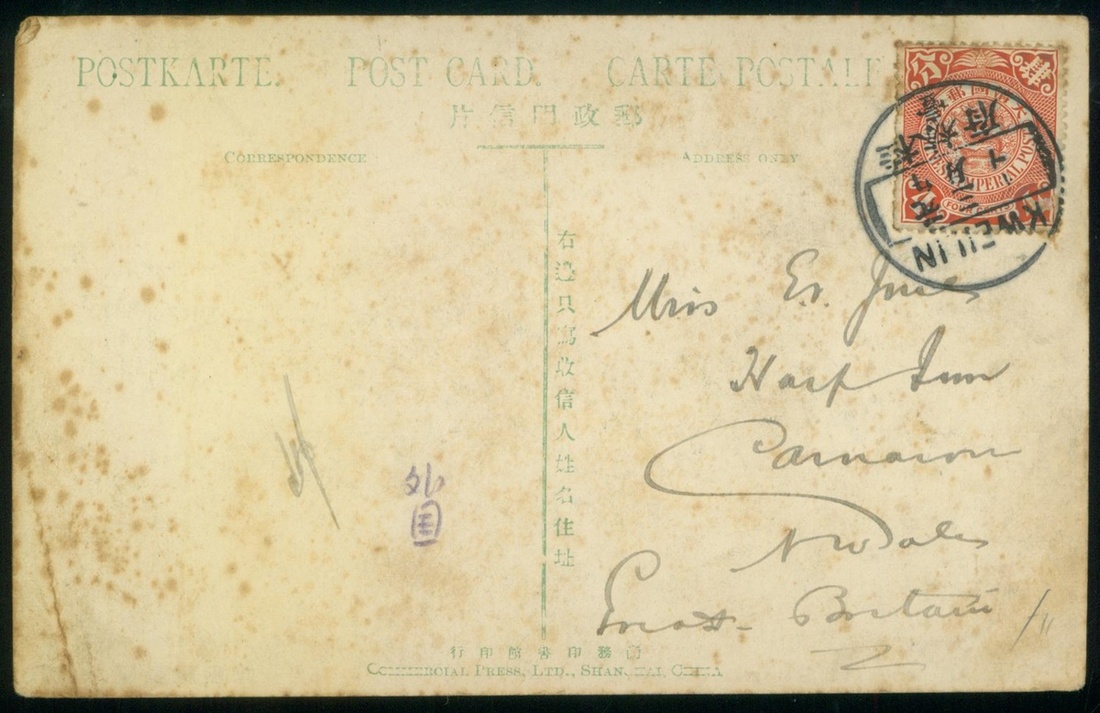 POSTKARTE. POST CARD. CARTE POSTALE
片信門政郵
CORRESPONDENCE
ADDRESS ONLY
右邊只寫收信人姓名住址
KWEILIN
IMPERIAL POST
FOUR CENTS
Miss Ev. Jones
Harp Inn
Carnarvon
N Wales
Great Britain
外国
行印館書印務商
COMMERCIAL PRESS, LTD., SHANGHAI, CHINA